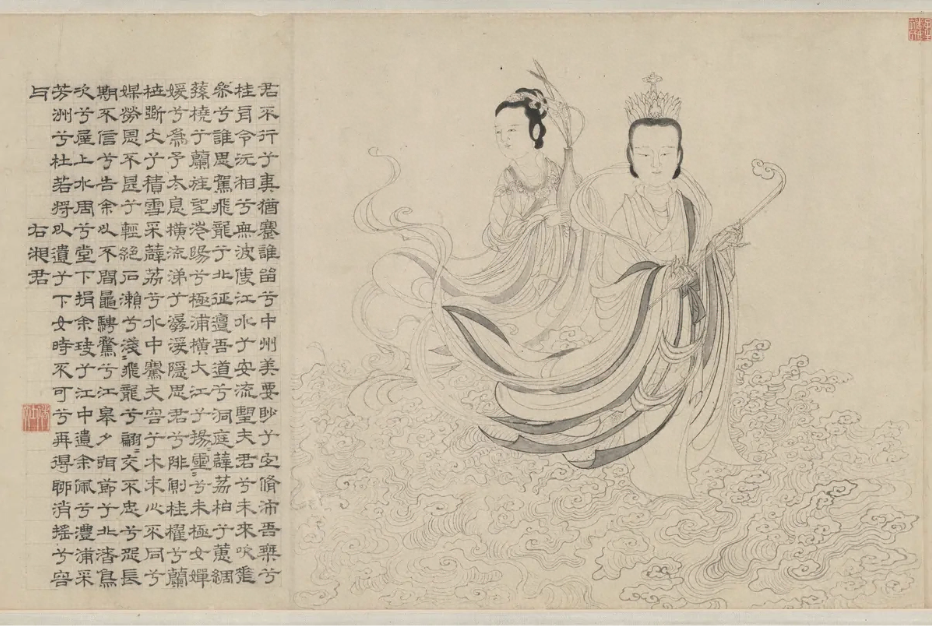 君不行兮夷猶蹇誰留兮中州美要眇兮宜脩沛吾乘兮
桂舟令沅湘兮無波使江水兮安流望夫君兮未來吹參
差兮誰思駕飛龍兮北征邅吾道兮洞庭薜荔柏兮蕙綢
蓀橈兮蘭旌望涔陽兮極浦橫大江兮揚靈=兮未極女嬋
媛兮爲予太息橫流涕兮潺湲隱思君兮陫側桂櫂兮蘭
枻斲仌兮積雪采薜荔兮水中搴夫容兮木末心不同兮
媒勞恩不甚兮輕絕石瀨兮淺=飛龍兮翩=交不忠兮怨長
期不信兮告余以不閒鼂騁騖兮江皋夕弭節兮北渚鳥
次兮屋上水周兮堂下捐余玦兮江中遺余佩兮澧浦采
芳洲兮杜若將以遺兮下女時不可兮再得聊消搖兮容
与
右湘君